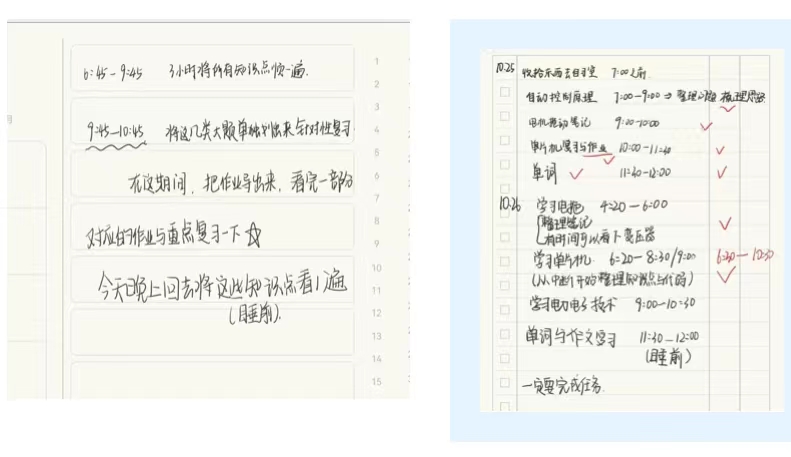 6:45-9:45 3小时将所有知识点顺一遍.
9:45-10:45 将这几类大题单独划出来针对性复习
在这期间，把作业导出来，看完一部分
对应的作业与重点复习一下☆
今天晚上回去将这些知识点看1遍
(睡前).
10.25 收拾东西去自习室 7:00之前
自动控制原理 7:00-9:00 → 整理问题 梳理思路
电机拖动笔记 9:00-10:00
单片机复习与作业 10:00-11:40
单词 11:40-12:00
10.26 学习电拖 4:20-6:00
整理笔记
有时间可以看下变压器
学习单片机 6:20-8:30/9:00 6:30-10:30
(从中断开始整理知识点与代码)
学习电力电子技术 9:00-10:30
单词与作文学习 11:30-12:00
(睡前)
一定要完成任务.
1
2
3
4
5
6
7
8
9
10
11
12
13
14
15